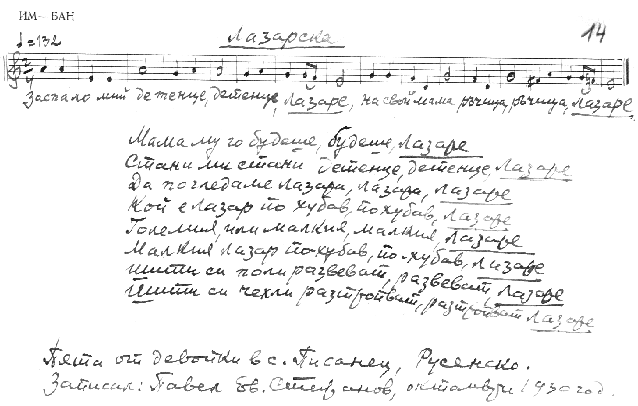 ИМ- БАН
♩=132 Лазарска 14
Заспало мий детенце, детенце, Лазаре, на свой мама ръчица, ръчица, Лазаре
Мама му го будеше, будеше, Лазаре
Стани ми стани детенце, детенце, Лазаре
Да погледаме Лазара, Лазара, Лазаре
Кой е Лазар по хубав, по хубав, Лазаре
Големия, или малкия, малкия, Лазаре
Малкия Лазар по хубав, по-хубав, Лазаре
Шити си поли развеват, развеват Лазаре
Шити си чехли разтропват, разтропват Лазаре
Пята от девойки в с. Писанец, Русенско.
Записал: Павел Ев. Стефанов, октомври 1930 год.